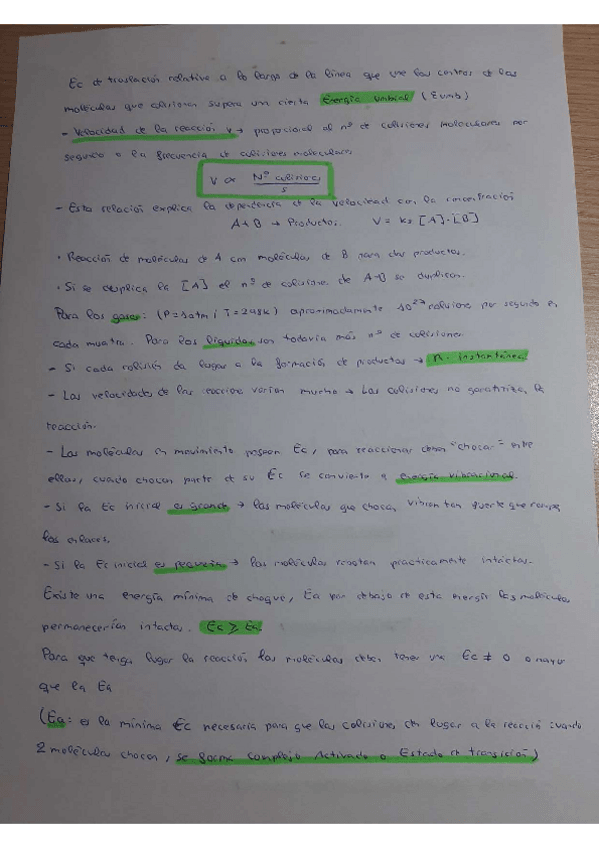 Ec de traslación relativa a lo largo de la línea que une los centros de las
moléculas que colisionan supera una cierta Energía umbral (Eumb)
- Velocidad de la reacción v → proporcional al nº de colisiones moleculares por
segundo o la frecuencia de colisiones moleculares
V ∝ Nº colisiones / s
- Esta relación explica la dependencia de la velocidad con la concentración
A+B → Productos. V = k2 [A]·[B]
· Reacción de moléculas de A con moléculas de B para dar productos.
· Si se duplica la [A] el nº de colisiones de A-B se duplican.
Para los gases: (P=1atm i T=298k) aproximadamente 10^27 colisiones por segundo en
cada muestra. Para los líquidos son todavía más nº de colisiones.
- Si cada colisión da lugar a la formación de productos → r. instantánea
- Las velocidades de las reacciones varían mucho → Las colisiones no garantizan la
reacción.
- Las moléculas en movimiento poseen Ec, para reaccionar deben "chocar" entre
ellas, cuando chocan parte de su Ec se convierte a energía vibracional.
- Si la Ec inicial es grande → las moléculas que chocan vibran tan fuerte que rompe
los enlaces.
- Si la Ec inicial es pequeña → las moléculas rebotan prácticamente intactas.
Existe una energía mínima de choque, Ea por debajo de esta energía las moléculas
permanecerían intactas. Ec ≥ Ea.
Para que tenga lugar la reacción las moléculas deben tener una Ec ≠ 0 o mayor
que la Ea
(Ea: es la mínima Ec necesaria para que las colisiones den lugar a la reacción cuando
2 moléculas chocan, se forma complejo Activado o Estado de transición)